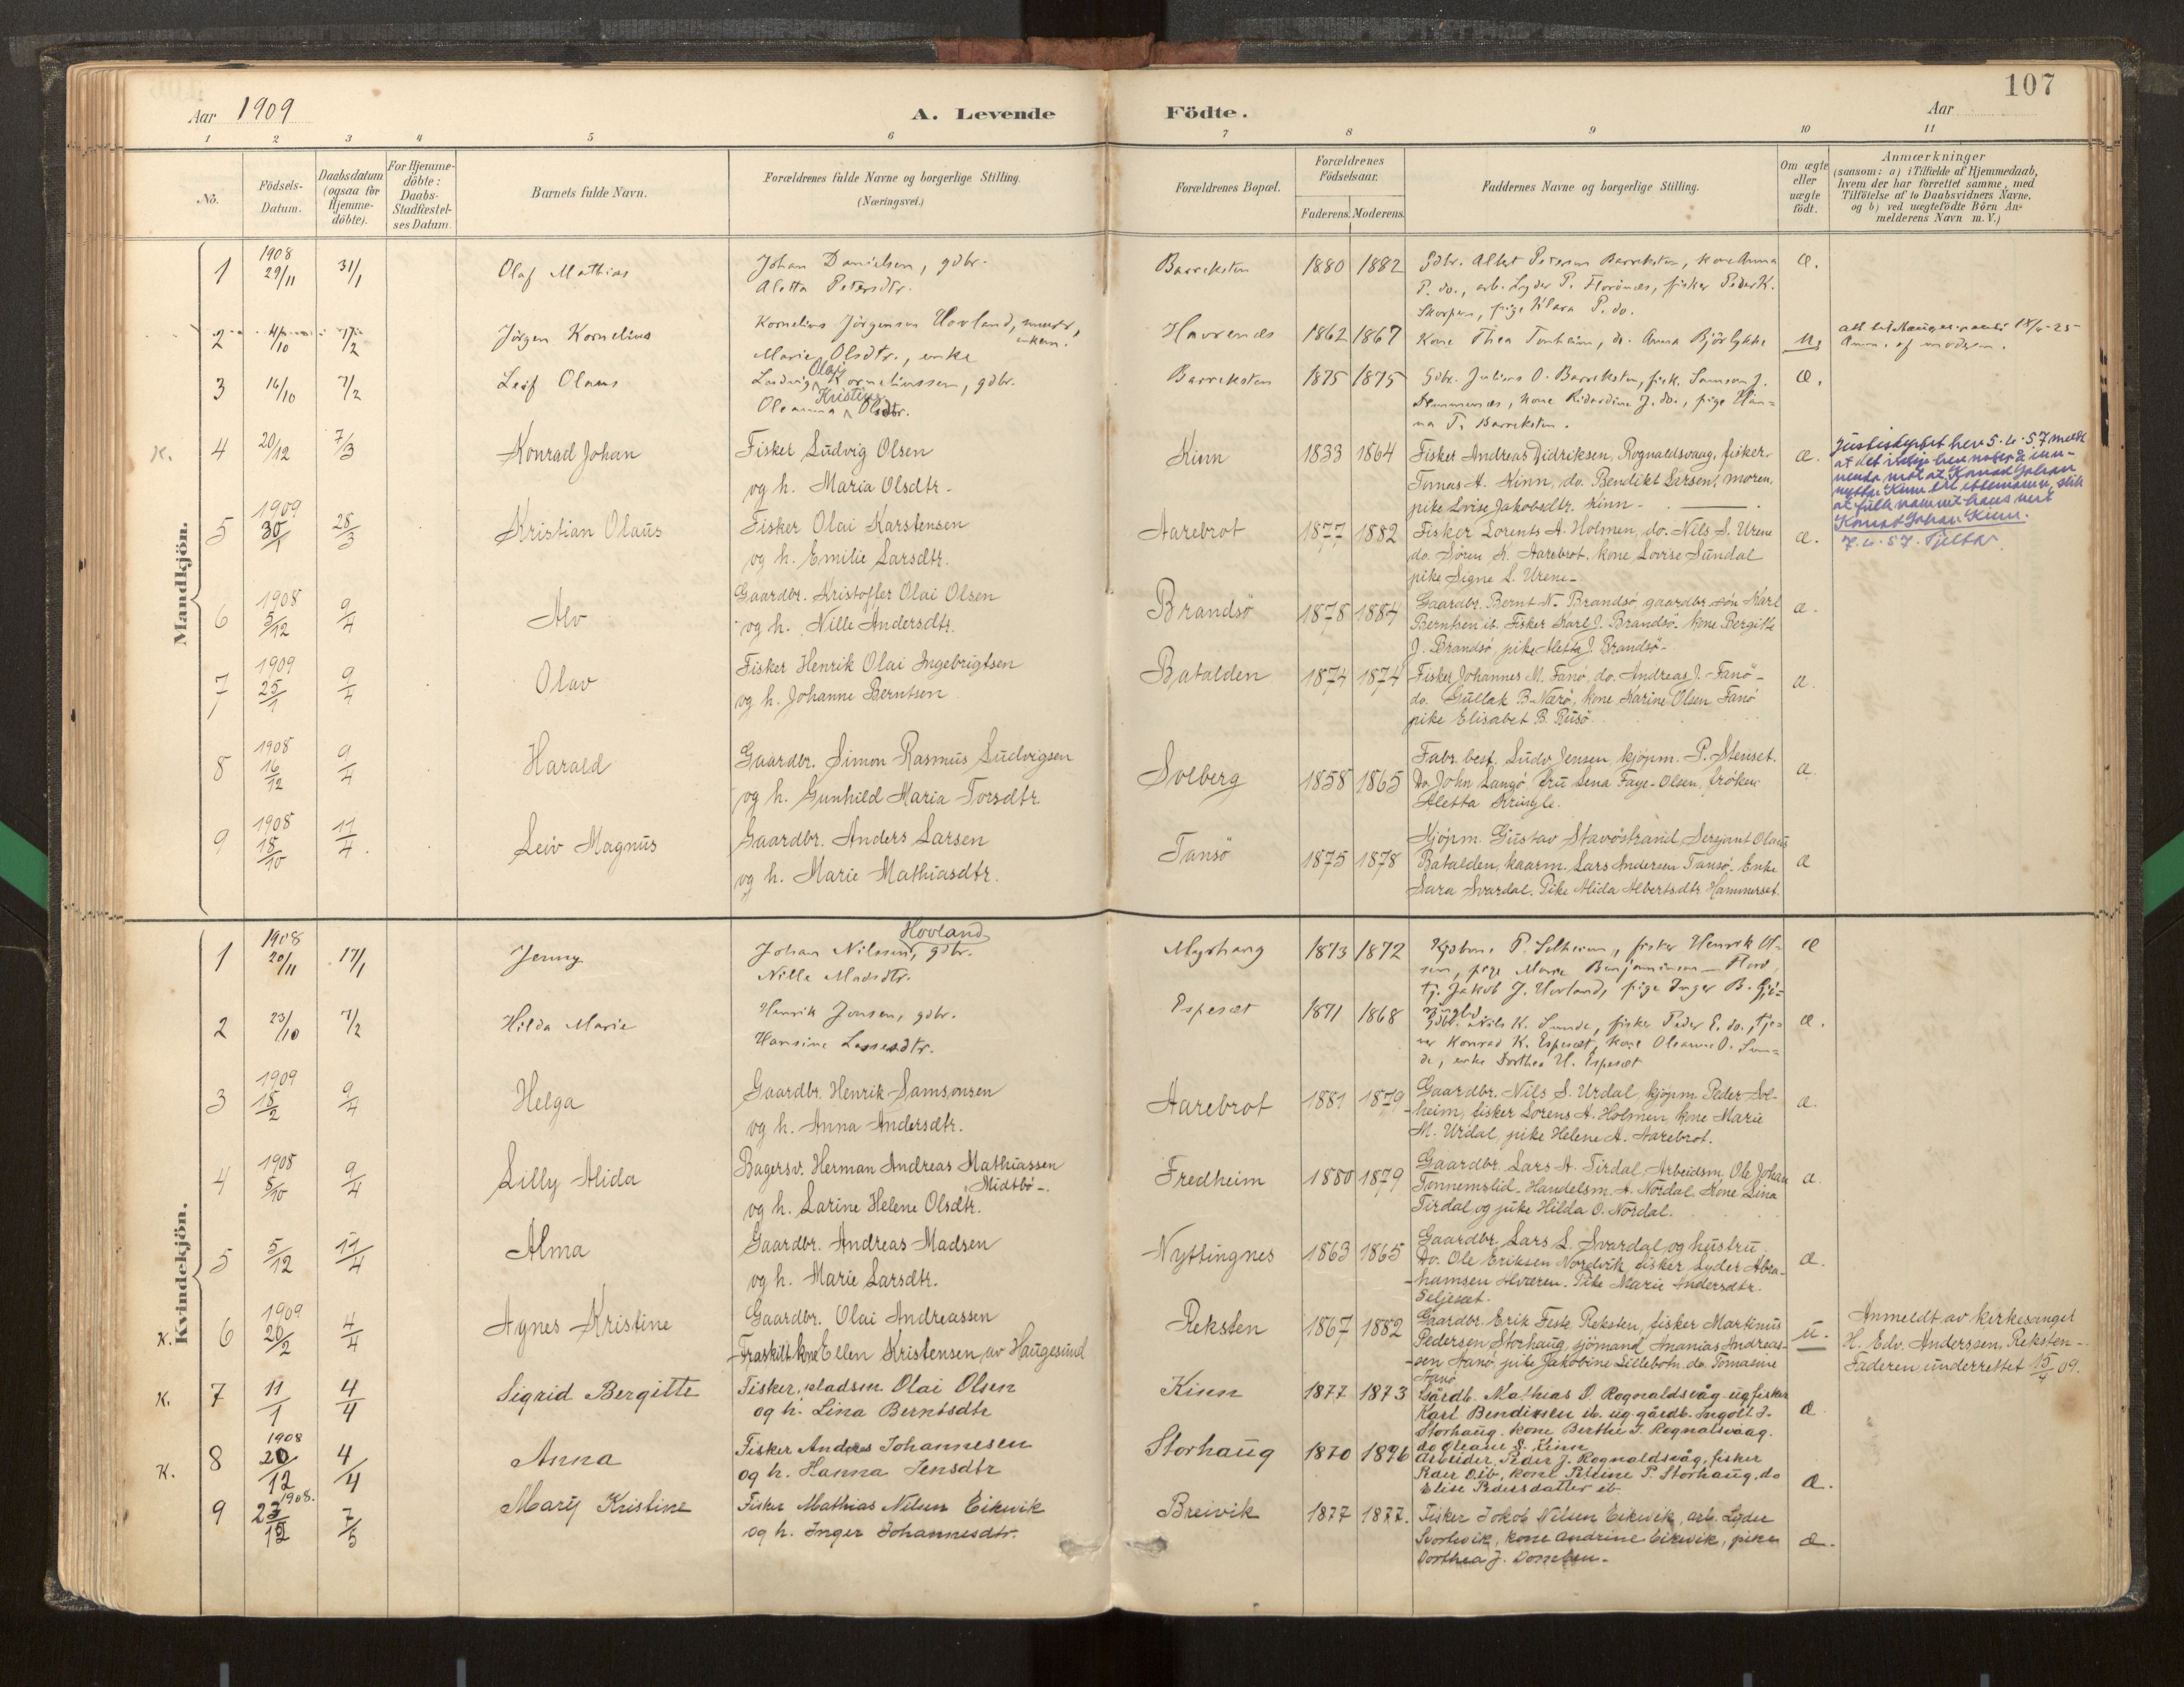 107
Aar 1909
A. Levende Födte.
Aar
1 2 3 4 5 6 7 8 9 10 11
No.
Födsels-Datum.
Daabsdatum (ogsaa for Hjemme-döbte).
For Hjemme-döbte: Daabs-Stadfæstel-ses Datum.
Barnets fulde Navn.
Forældrenes fulde Navne og borgerlige Stilling. (Næringsvei.)
Forældrenes Bopæl.
Forældrenes Födselsaar.
Faderens. Moderens.
Faddernes Navne og borgerlige Stilling.
Om ægte eller uægte födt.
Anmærkninger
(saasom: a) i Tilfælde af Hjemmedaab, hvem der har forrettet samme, med Tilföielse af to Daabsvidners Navne, og b) ved uægtefödte Börn An-melderens Navn m. V.)
Mandkjön.
1 1908 29/11 31/1 Olaf Mathias Johan Danielsen, gdbr. Barreksten 1880 1882 Gdbr. Albert Petersen Barreksten, kone Anna æ.
Aletta Petersdtr. P. do., arb. Lyder P. Florönæs, fisker Peder K.
Skorpen, pige Klara P. do.
2 4/10 7/2 Jörgen Kornelius Kornelius Jörgensen Hovland, Havrenæs 1862 1867 Kone Thea Tonheim, do. Anna Björlykke u.
enkem.
Marie Olsdtr., enke Anm. af moderen.
3 16/10 7/2 Leif Olaus Ludvig Olai Korneliussen, gdbr. Barreksten 1875 1875 Gdbr. Julius O. Barreksten, fisk. Samson J. æ.
Oleanna Kristine Olsdtr. kone Rikardine J. do., pige Han-
na T. Barreksten.
K. 4 20/12 7/3 Konrad Johan Fisker Ludvig Olsen Kinn 1833 1864 Fisker Andreas Didriksen, Rognaldsvaag, fisker æ.
og h. Maria Olsdtr. Tomas A. Kinn, do. Bendikt Larsen, moren,
pike Lovise Jakobsdtr. Kinn.
Justisdepartet hev 5.6.57 meldt
at det ikkje hev noko å inn-
venda mot at Konrad Johan
nyttar Kinn til ettermamn, slik
at fulle namnet hans vert
Konrad Johan Kinn.
7.6.57.
5 1909 30/1 28/3 Kristian Olaus Fisker Olai Karstensen Aarebrot 1877 1882 Fisker Lorents A. Holmen, do. Nils S. Urene æ.
og h. Emilie Larsdtr. do. Søren K. Aarebrot. kone Lovise Sundal
pike Signe S. Urene.
6 1908 5/12 9/4 Alv Gaardbr. Kristoffer Olai Olsen Brandsö 1878 1884 Gaardbr. Bernt N. Brandsö, gaardbr. sön Karl æ.
og h. Nille Andersdtr. Berntsen ib. Fisker Karl J. Brandsö. kone Bergitte
J. Brandsö, pike Aletta J. Brandsö.
7 1909 25/1 9/4 Olav Fisker Henrik Olai Ingebrigtsen Batalden 1874 1874 Fisker Johannes M. Fanö, do. Andreas J. Fanö æ.
og h. Johanne Berntsen do. Gullak B. Nærö, kone Karine Olsen Fanö
pike Elisabet B. Rusö.
8 1908 16/12 9/4 Harald Gaardbr. Simon Rasmus Ludvigsen Solberg 1858 1865 Fabr. best. Ludv Jensen, kjöpm. P. Stenset. æ.
og h. Gunhild Maria Torsdtr Do. John Langö, fru Lena Faye-Olsen, fröken
Aletta Kringle.
9 1908 18/10 11/4 Leiv Magnus Gaardbr. Anders Larsen Tansö 1875 1878 Kjöpm. Gustav Stavöstrand, Sersjant Olaus æ
og h. Marie Mathiasdtr. Batalden, kaarm. Lars Andersen Tansö. Enke
Sara Svardal. Pike Alida Albertsdtr Hammerset.
Kvindekjön.
1 1908 20/11 17/1 Jenny Johan Nilssen Hovland, gdbr. Myrhaug 1873 1872 P. Solheim, fisker Henrik Ol- æ
Nille Madsdtr. sen, pige Marie Benjaminsen
tj. Jakob J. Hovland, pige Inger B.
2 23/10 7/2 Hilda Marie Henrik Jonsen, gdbr. Espeset 1871 1868 Gdbr. Nils K. Sunde, fisker Peder E. do., tje- æ.
Hansine Lassesdtr. ner Konrad K. Espeset, kone Oleanne O. Sun-
de, enke Dorthea H. Espeset
3 1909 18/2 9/4 Helga Gaardbr. Henrik Samsonsen Aarebrot 1881 1879 Gaardbr. Nils S. Urdal, kjöpm. Peder Sol- æ.
og h. Anna Andersdtr. heim, fisker Lorens A. Holmen, kone Marie
M. Urdal, pike Helene A. Aarebrot.
4 1908 8/10 9/4 Lilly Alida Bagersv. Herman Andreas Mathiassen Midtbö Fredheim 1880 1879 Gaardbr. Lars A. Tirdal, Arbeidsm. Ole Johan æ.
og h. Larine Helene Olsdtr. Tonnemslid. Handelsm. A. Nordal. Kone Lina
Tirdal og pike Hilda O. Nordal.
5 5/12 11/4 Alma Gaardbr. Andreas Madsen Nyttingnes 1863 1865 Gaardbr. Lars L. Svardal og hustru æ.
og h. Marie Larsdtr. Do. Ole Eriksen Nordvik, fisker Lyder Abra-
hamsen Hværen. Pike Marie Andersdtr.
Seljeset.
K. 6 1909 20/2 4/4 Agnes Kristine Gaardbr. Olai Andreassen Reksten 1867 1882 Gaardbr. Erik Feste, Reksten, fisker Martinus u.
Fraskilt kone Ellen Kristensen av Haugesund Pedersen Storhaug, sjömand Ananias Andreas-
sen Fanö, pike Jakobine Lillebotn, do. Tomasine
Fanö
Anmeldt av kirkesanger
H. Edv. Anderssen, Reksten.
Faderen underrettet 15/4 09.
K. 7 11/1 4/4 Sigrid Bergitte Fisker, pladsm. Olai Olsen Kinn 1877 1873 Gårdb. Mathias O. Rognaldsvåg. ug. fisker æ
og h. Lina Berntsdtr Karl Bendiksen ib. ug. gårdb. Ingolf J.
Storhaug. kone Berthe J. Rognalsvaag.
do Oleane S. Kinn
K. 8 1908 20/12 4/4 Anna Fisker Anders Johannesen Storhaug 1870 1876 Arbeider Peder J. Rognaldsvåg, fisker æ.
og h. Hanna Jensdtr ib, kone Petrine P. Storhaug, do
Elise Pedersdatter ib.
9 1908. 23/12 7/5 Mary Kristine Fisker Mathias Nilsen Eikevik Breivik 1877 1877. Fisker Jakob Nilsen Eikevik, arb. Lyder æ.
og h. Inger Johannesdtr. kone Andrine Eikevik, piken
Dorthea J.